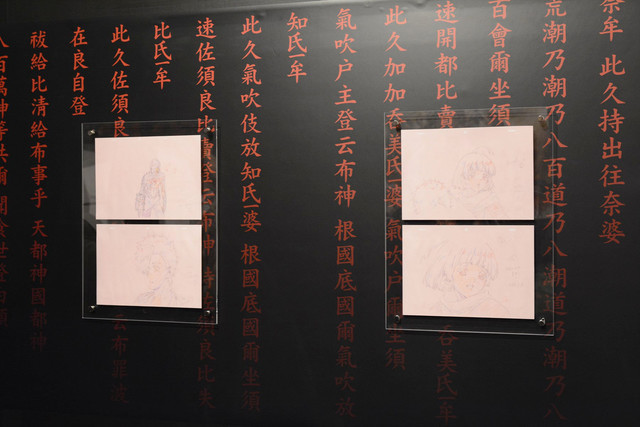 奈牟 此久持出往奈婆
荒潮乃潮乃八百道乃八潮道乃潮乃八
百會爾坐須
速開都比賣 呑美氐牟
此久加加呑美氐婆 氣吹戸 坐須
氣吹戸主登云布神 根國底國爾氣吹放
知氐牟
此久氣吹伎放知氐婆 根國底國爾坐須
速佐須良比賣登云布神 須良比失
比氐牟
此久佐須良 云布罪波
在良自登
祓給比清給布事乎 天都神國都神
八百萬神等共爾 聞食世登白須